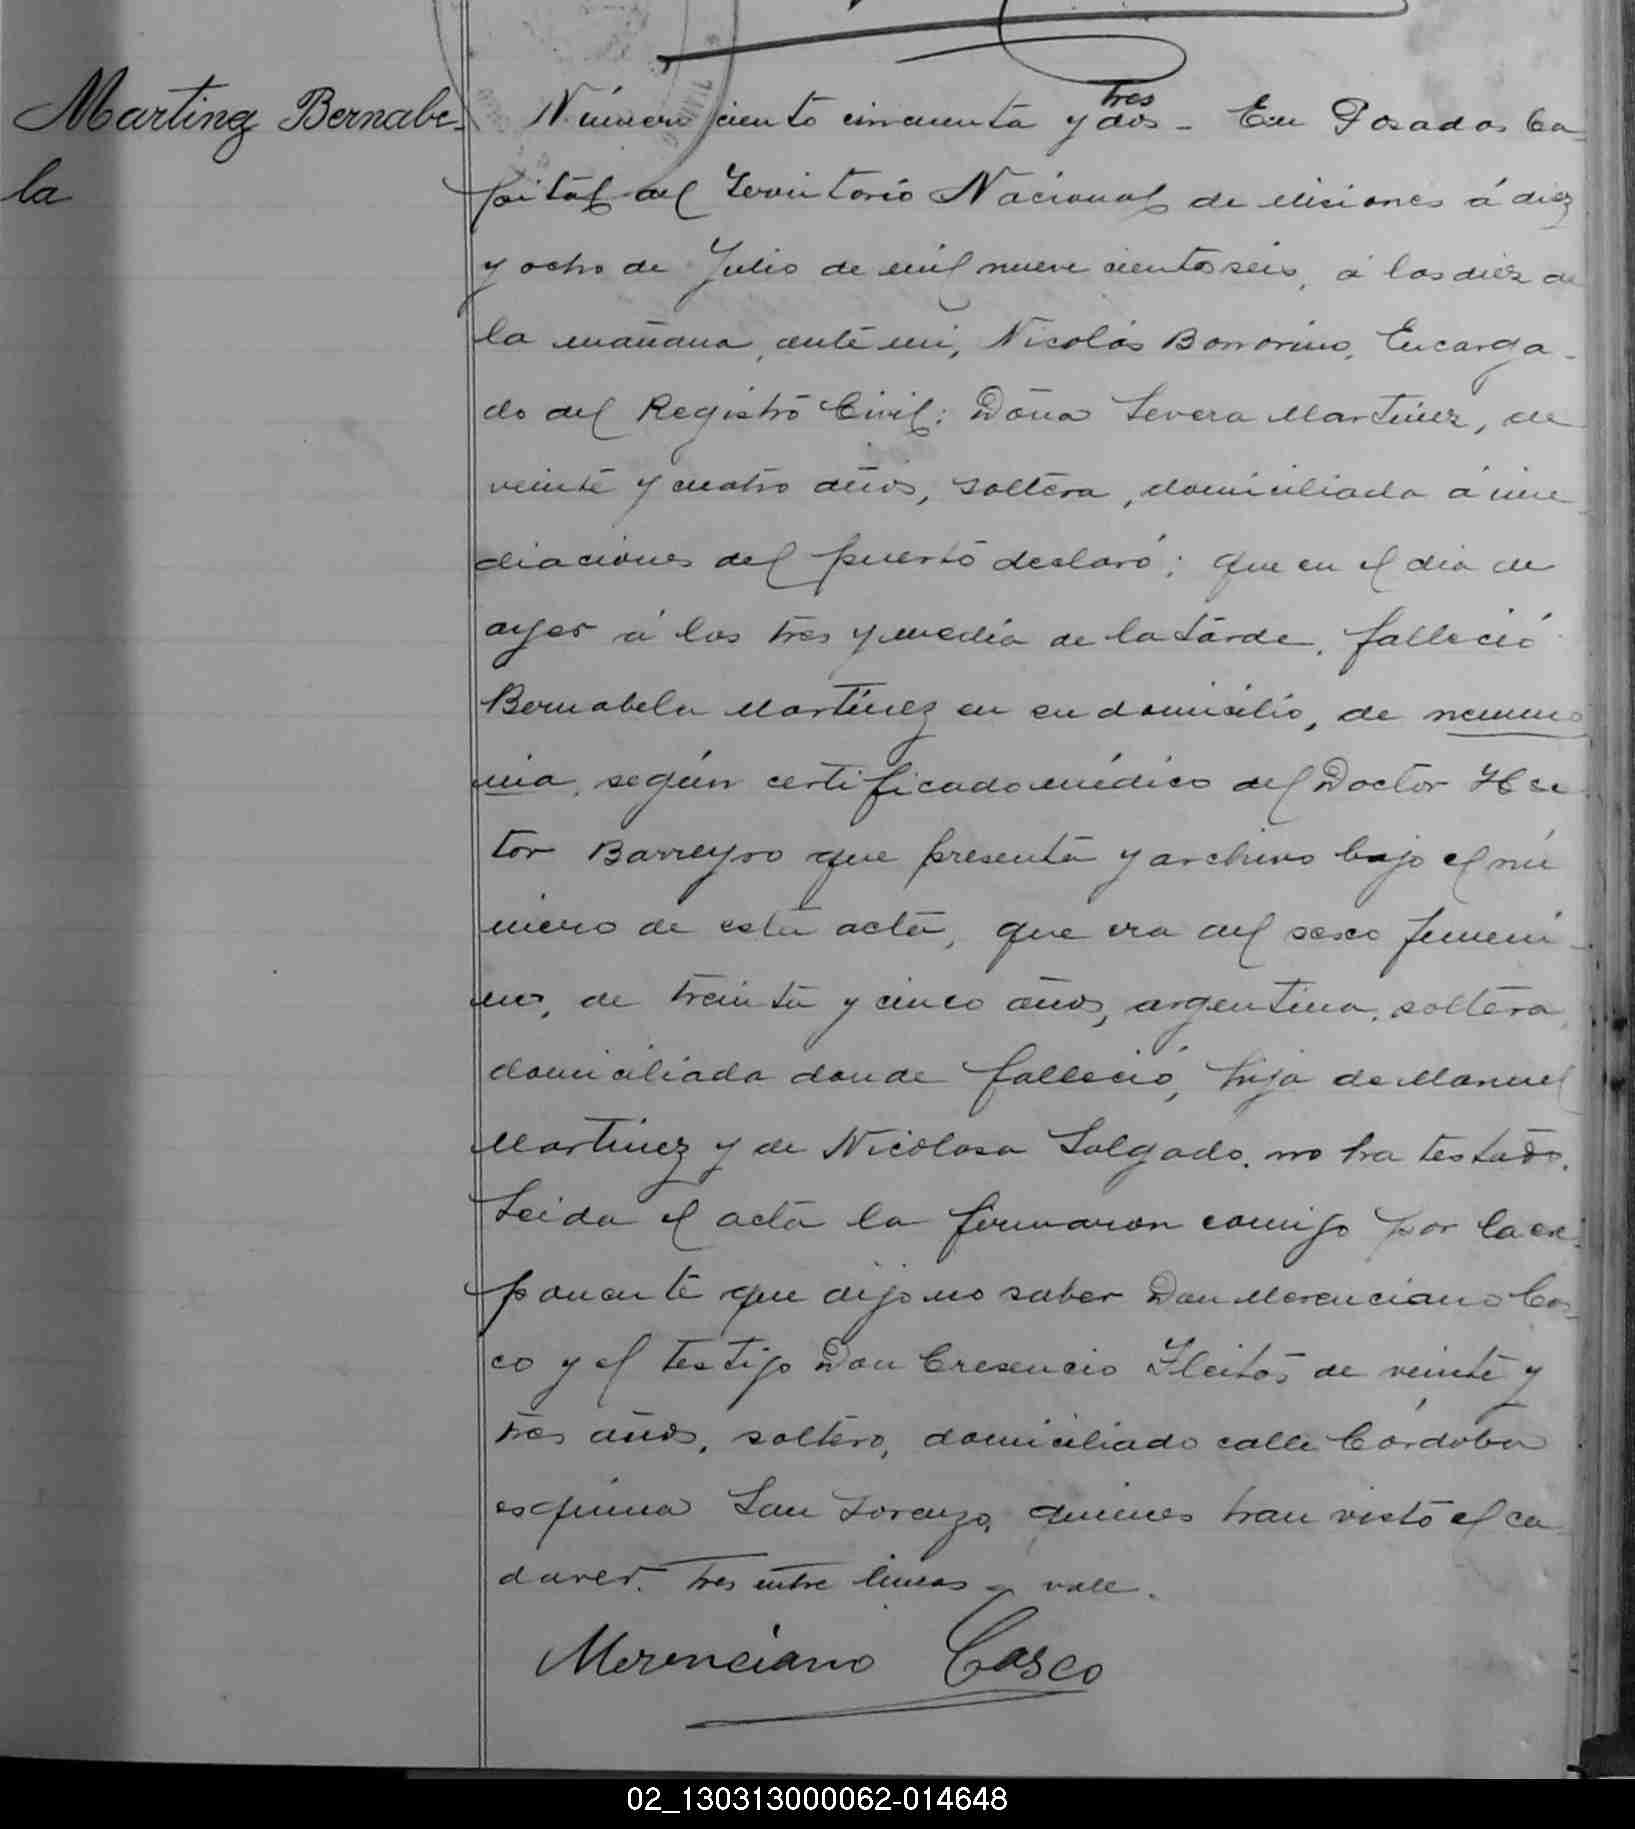 Martinez Bernabe-
la
tres
Número ciento cincuenta y dos - En Posadas Ca-
pital del Territorio Nacional de Misiones á diez
y ocho de Julio de mil nueve cientos seis, á las diez de
la mañana, ante mi, Nicolás Borrorino, Encarga-
do del Registro Civil: Doña Severa Martinez, de
veinte y cuatro años, soltera, domiciliada á inme
diaciones del puerto declaró: que en el dia de
ayer á las tres y media de la tarde, falleció
Bernabela Martínez en su domicilio, de neumo
nia, según certificado médico del Doctor Hec
tor Barreyro que presenta y archivo bajo el nú
mero de esta acta, que era del sexo femeni-
no, de treinta y cinco años, argentina, soltera,
domiciliada donde falleció, hija de Manuel
Martínez y de Nicolasa Salgado, no ha testado.
Leida el acta la firmaron comigo por la ex-
ponente que dijo no saber Don Merenciano Cas-
co y el testigo Don Cresencio Fleitas de veinte y
tres años, soltero, domiciliado calle Córdoba
esquina San Lorenzo, quienes han visto el ca
daver. tres entre lineas - vale.
Merenciano Casco
02_130313000062-014648